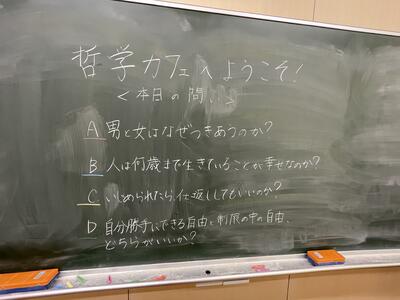 哲学カフェへようこそ!
<本日の問い>
A 男と女はなぜつきあうのか?
B 人は何歳まで生きていることが幸せなのか?
C いじめられたら仕返ししてもいいのか?
D 自分勝手にできる自由と制限の中の自由、
どちらがいいか?